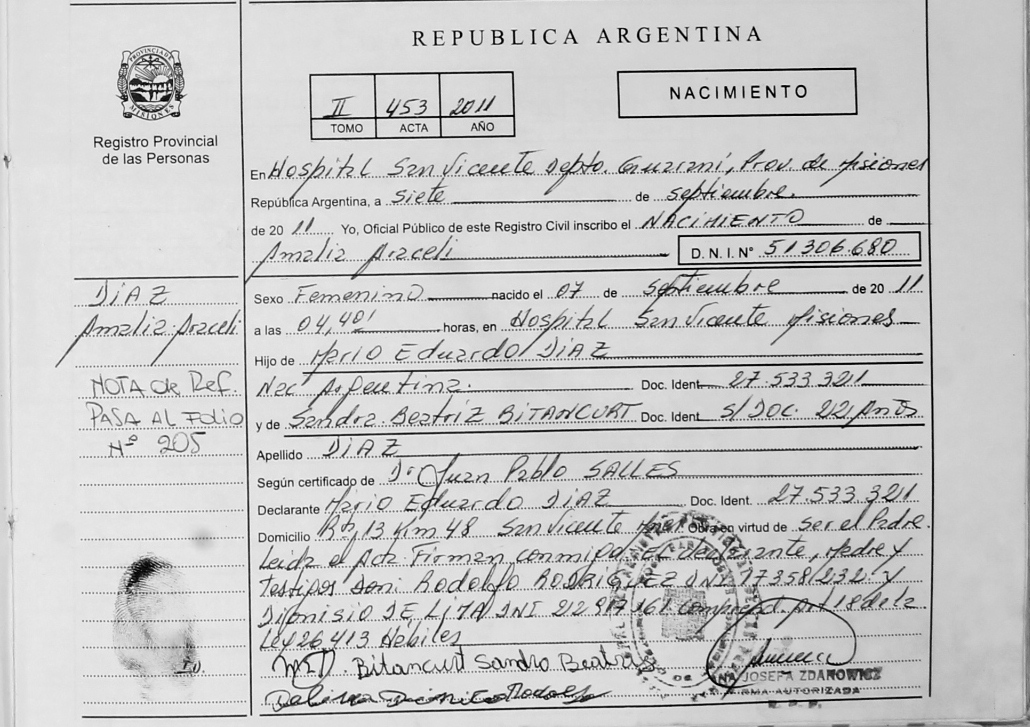 REPUBLICA ARGENTINA
PROVINCIA DE
MISIONES
Registro Provincial
de las Personas
II 453 2011
TOMO ACTA AÑO
NACIMIENTO
En Hospital San Vicente Depto. Guaraní, Prov. de Misiones
República Argentina, a siete de septiembre.
de 20 11 Yo, Oficial Público de este Registro Civil inscribo el NACIMIENTO de
Amalia Araceli D.N.I. N° 51306.680
DiAZ
Amalia Araceli
NOTA de Ref.
PASA AL Folio
Nº 205
Sexo Femenino nacido el 07 de septiembre de 20 11
a las 04,40 horas, en Hospital San Vicente Misiones
Hijo de Mario Eduardo DiAZ
Nac Argentina. Doc. Ident. 27.533.321
y de Sandra Beatriz BITANCURT Doc. Ident. S/DOC. 22 Años
Apellido DiAZ
Según certificado de Dr Juan Pablo SALLES
Declarante Mario Eduardo DiAZ Doc. Ident. 27.533.321
Domicilio 13 Km 48 San Vicente Obra en virtud de ser el Padre.
Leida el Acta Firman conmigo El declarante, Madre y
Testigos Don: Rodolfo RODRIGUEZ DNI 17358232 y
Dionisio DE LIMA DNI art 18 de la
Ley 26.413 Hábiles
Bitancurt Sandra Beatriz
JOSEFA ZDANOWICZ
FIRMA AUTORIZADA
R. P. P.